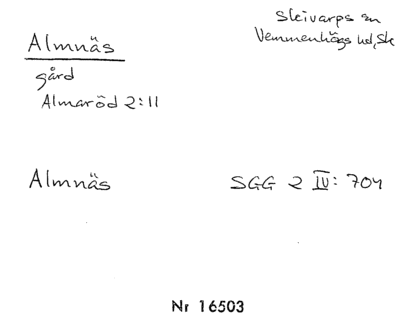 Almnäs
Skivarps sn
Vemmenhögs hd, Sk
gård
Almaröd 2:11
Almnäs
SGG 2 IV: 704
Nr 16503